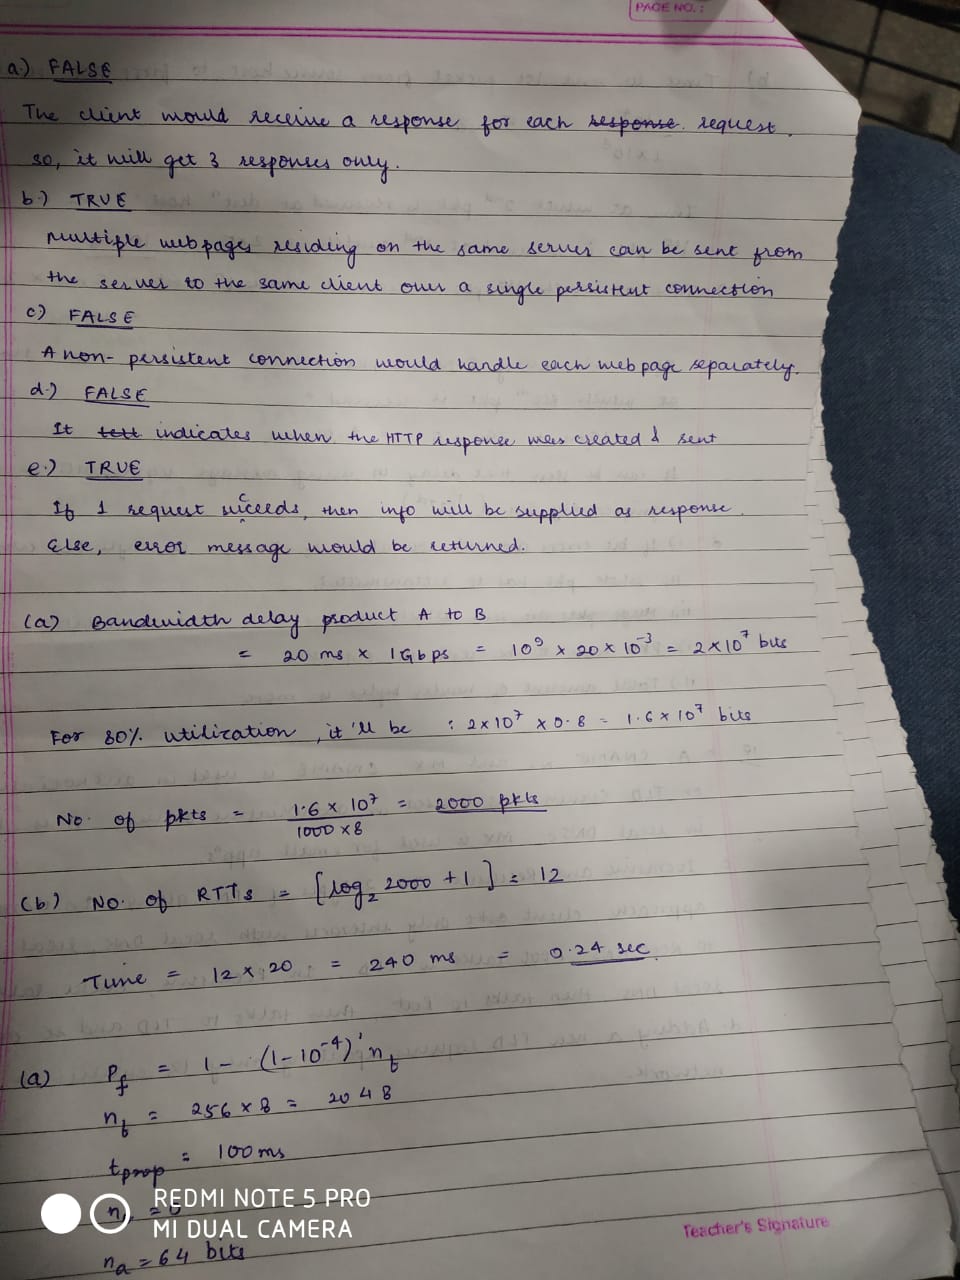 PAGE NO.:
a.) FALSE
The client would receive a response for each response. request.
so, it will get 3 responses only.
b.) TRUE
Multiple webpages residing on the same server can be sent from
the server to the same client over a single persistent connection
c.) FALSE
A non-persistent connection would handle each webpage separately.
d.) FALSE
It indicates when the HTTP response was created & sent
e.) TRUE
If 1 request succeeds, then info will be supplied as response.
Else, error message would be returned.
(a) Bandwidth delay product A to B
= 20 ms × 1Gbps = 10⁹ × 20 × 10⁻³ = 2×10⁷ bits
For 80% utilization, it'll be : 2×10⁷ × 0.8 = 1.6 × 10⁷ bits
No. of pkts = 1.6 × 10⁷ / 1000 × 8 = 2000 pkts
(b) No. of RTTs = [log₂ 2000 + 1] = 12
Time = 12 × 20 = 240 ms = 0.24 sec.
(a) Pf = 1 - (1-10⁻⁴)' nf
nf = 256 × 8 = 2048
tprop = 100 ms
REDMI NOTE 5 PRO
MI DUAL CAMERA
na = 64 bits
Teacher's Signature